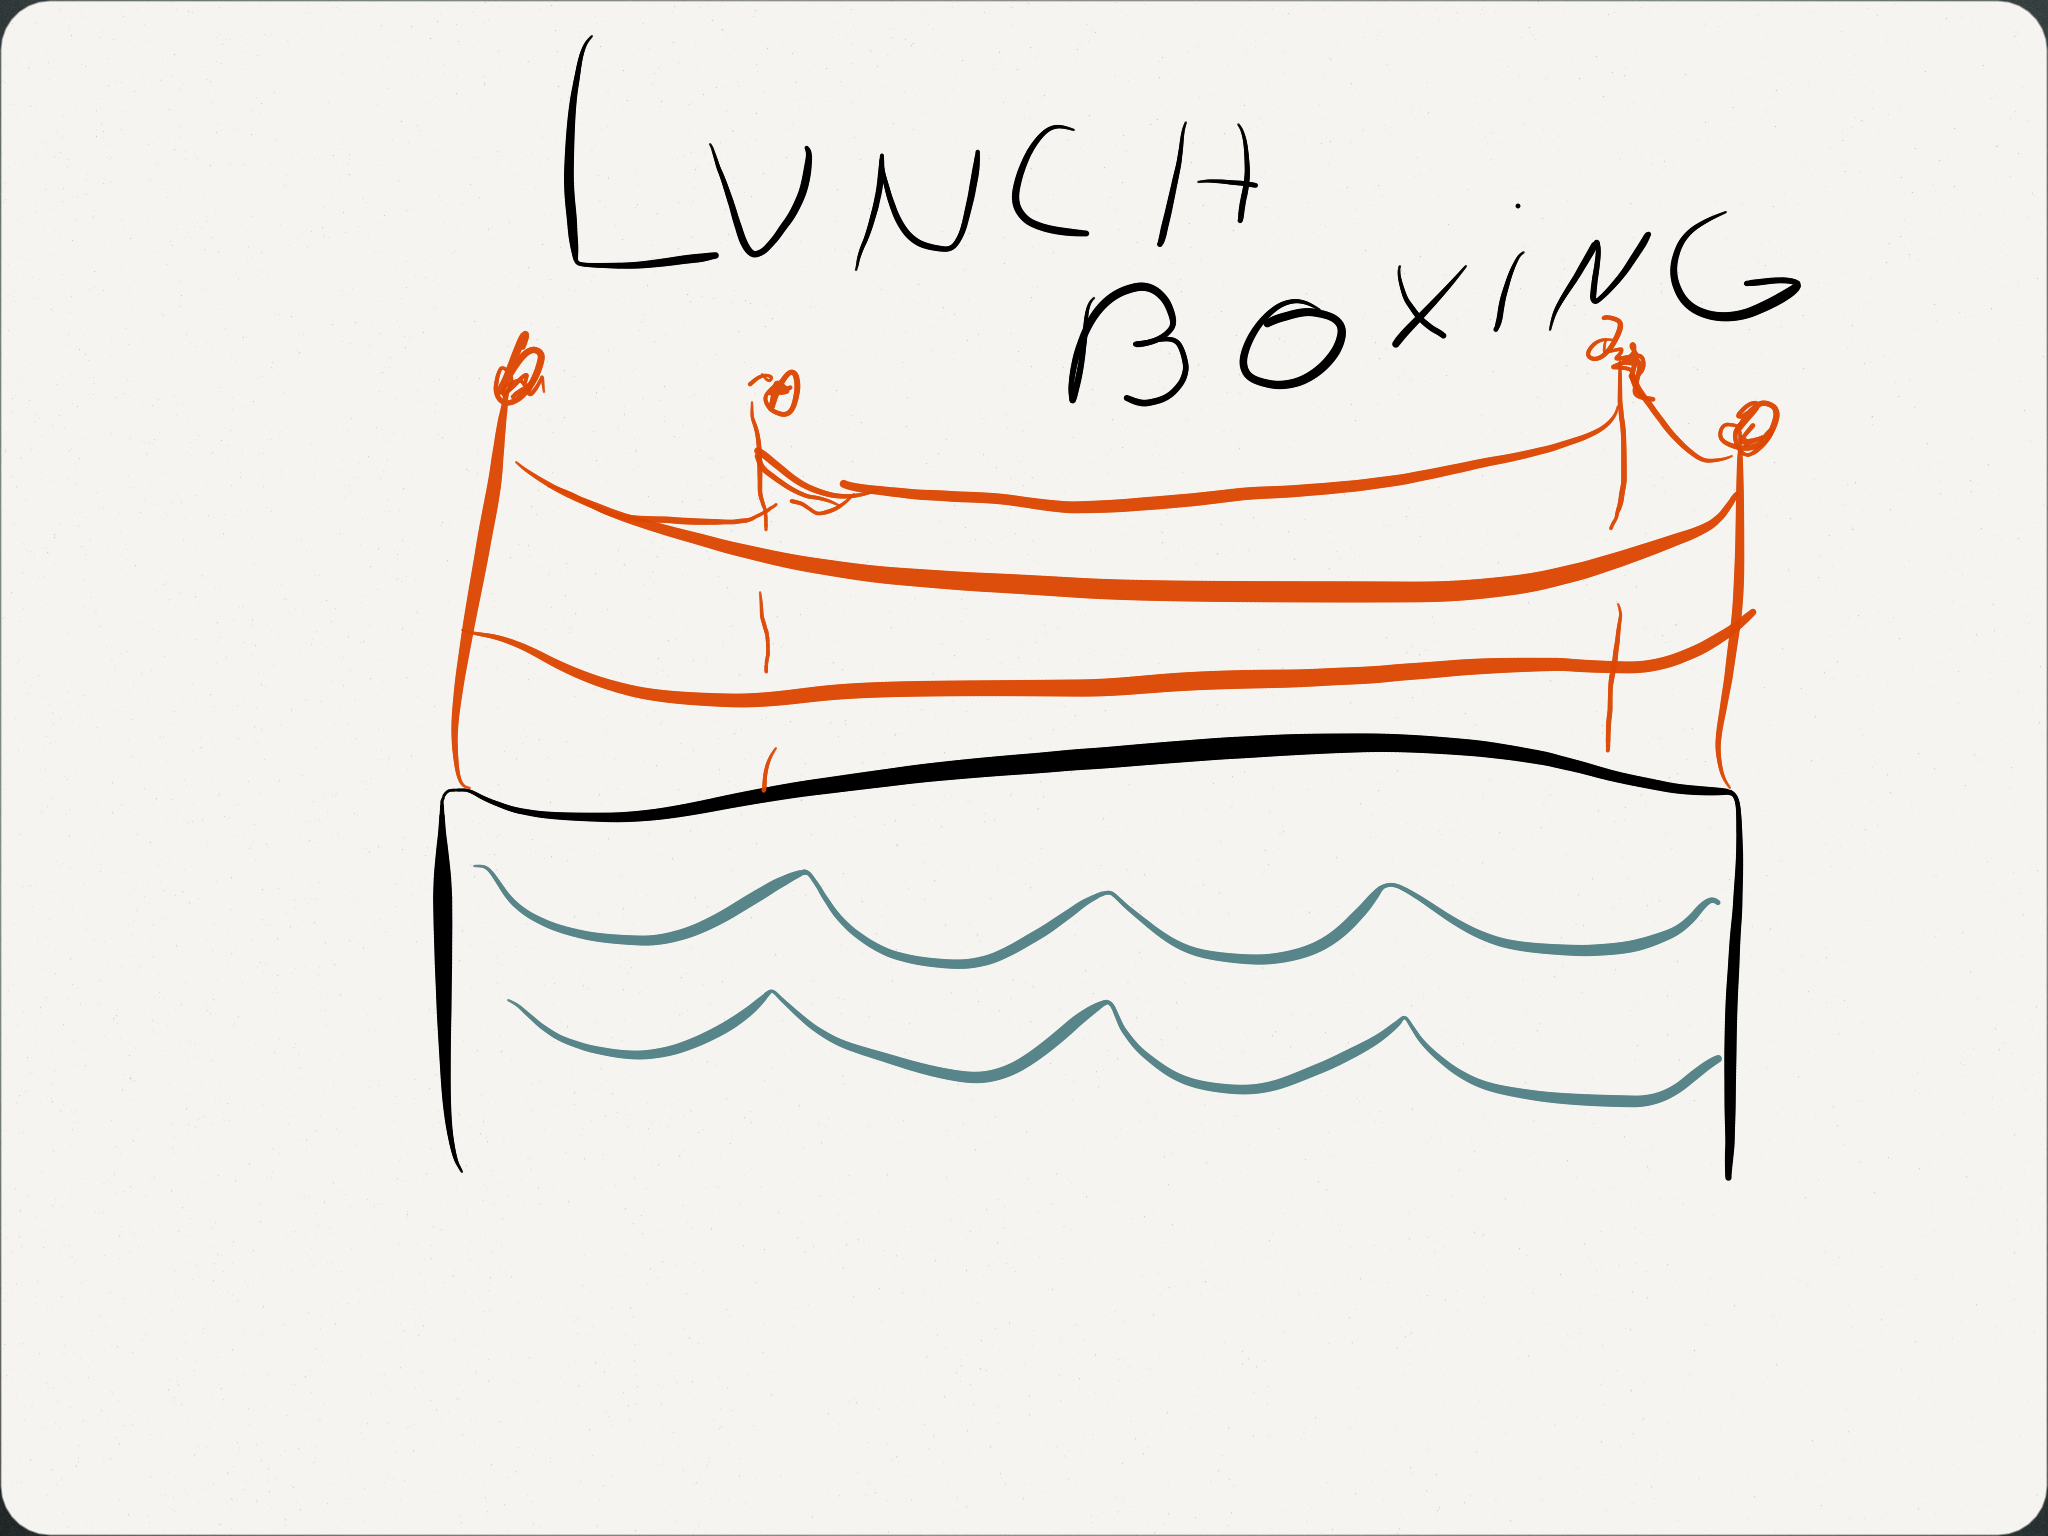 LUNCH
BOXiNG